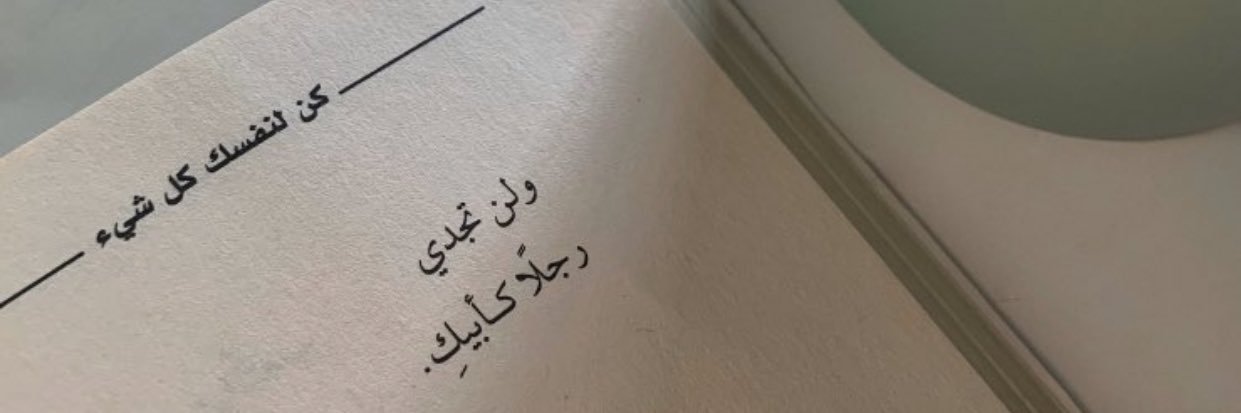 كن لنفسك كل شيء
ولن تجدي
رجلًا كأبيكِ.